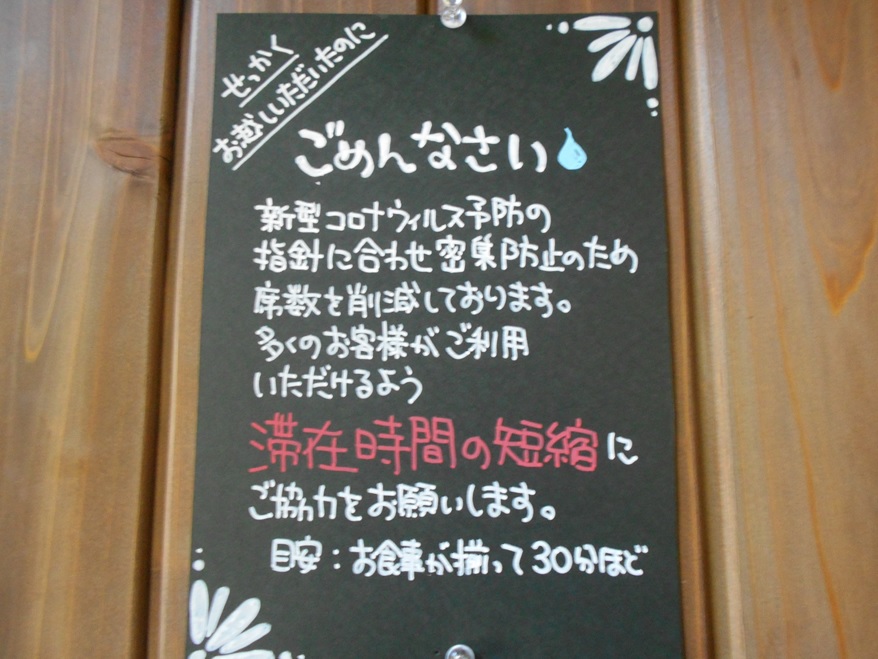 せっかく
お越しいただいたのに
ごめんなさい
新型コロナウィルス予防の
指針に合わせ密集防止のため
席数を削減しております。
多くのお客様がご利用
いただけるよう
滞在時間の短縮に
ご協力をお願いします。
目安：お食事が揃って30分ほど